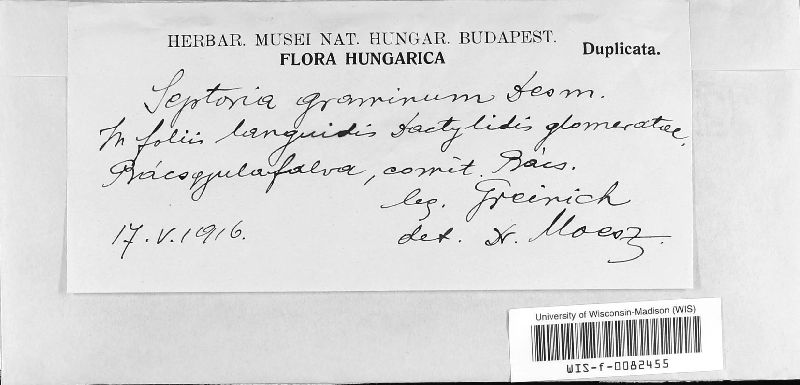 HERBAR. MUSEI NAT. HUNGAR. BUDAPEST.
FLORA HUNGARICA
Duplicata.
Septoria graminum Desm.
In foliis languidis Dactylidis glomeratae.
Bácsgyulafalva, comit. Bács.
leg. Greinich
17.V.1916.
det. Dr. Moesz.
University of Wisconsin-Madison (WIS)
WIS-f-0082455